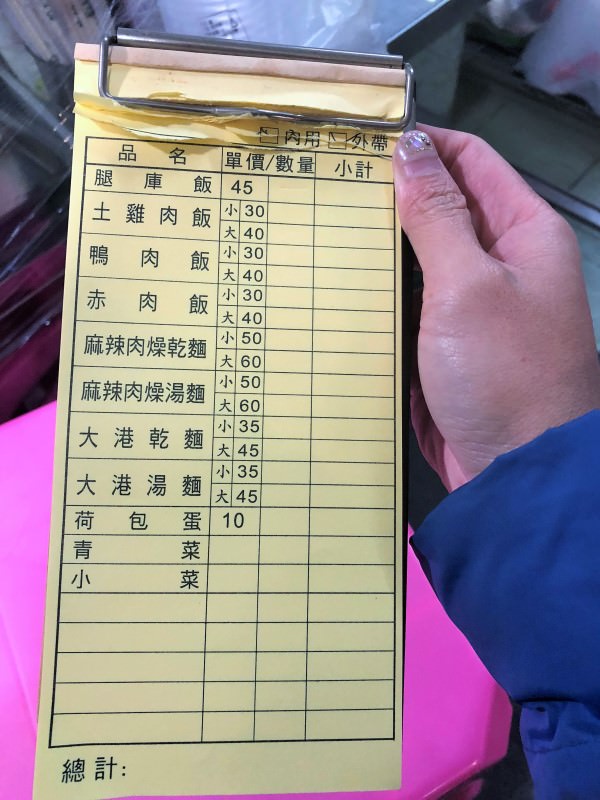 內用 外帶
品名 單價/數量 小計
腿庫飯 45
土雞肉飯 小 30
大 40
鴨肉飯 小 30
大 40
赤肉飯 小 30
大 40
麻辣肉燥乾麵 小 50
大 60
麻辣肉燥湯麵 小 50
大 60
大港乾麵 小 35
大 45
大港湯麵 小 35
大 45
荷包蛋 10
青菜
小菜
總計: